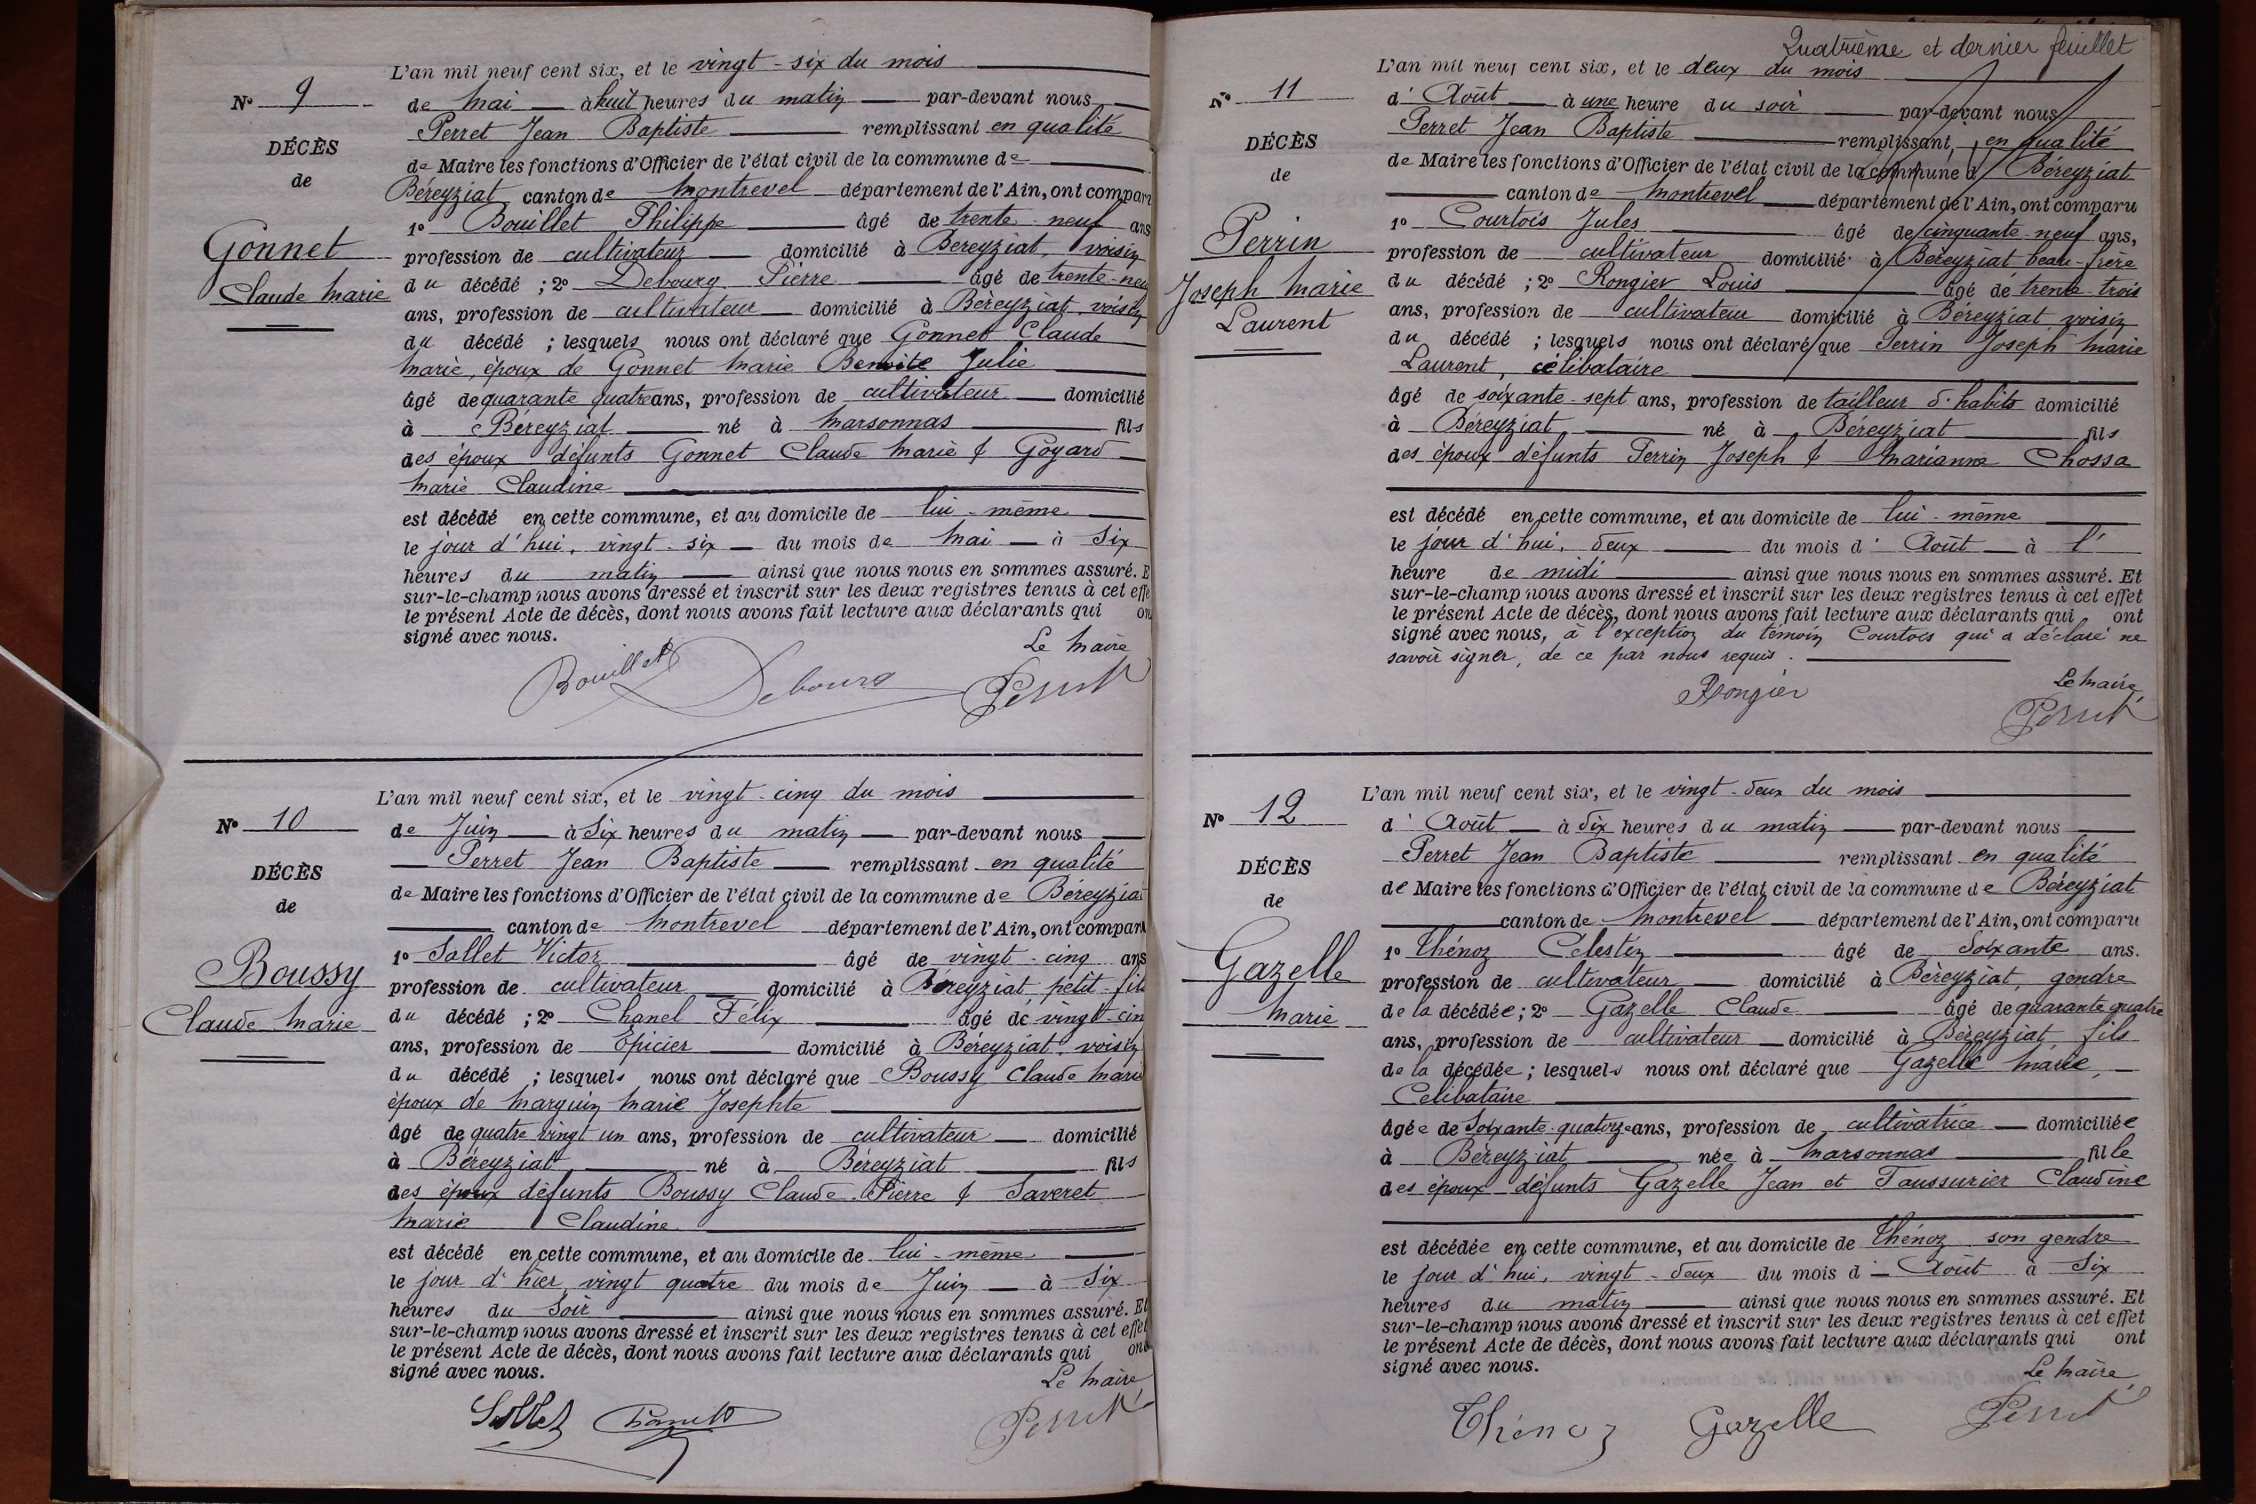 L'an mil neuf cent six, et le vingt-six du mois
N° 9
de Mai à huit heures du matin par-devant nous
Perret Jean Baptiste remplissant en qualité
DÉCÈS
de Maire les fonctions d'Officier de l'état civil de la commune de
de
Béreyziat canton de Montrevel département de l'Ain, ont comparu
1° Bouillet Philippe âgé de trente-neuf ans
Gonnet
profession de cultivateur domicilié à Béreyziat, voisin
Claude Marie
du décédé ; 2° Debourg Pierre âgé de trente-neuf
ans, profession de cultivateur domicilié à Béreyziat, voisin
du décédé ; lesquels nous ont déclaré que Gonnet Claude
Marie, époux de Gonnet Marie Benoite Julie
âgé de quarante quatre ans, profession de cultivateur domicilié
à Béreyziat né à Marsonnas fils
des époux défunts Gonnet Claude Marie & Goyard
Marie Claudine
est décédé en cette commune, et au domicile de lui-même
le jour d'hui, vingt-six du mois de Mai à Six
heures du matin ainsi que nous nous en sommes assuré. E
sur-le-champ nous avons dressé et inscrit sur les deux registres tenus à cet effe
le présent Acte de décès, dont nous avons fait lecture aux déclarants qui on
signé avec nous.
Le Maire
Bouillet Debourg Perret
L'an mil neuf cent six, et le vingt-cinq du mois
N° 10
de Juin à Six heures du matin par-devant nous
Perret Jean Baptiste remplissant en qualité
DÉCÈS
de Maire les fonctions d'Officier de l'état civil de la commune de Béreyziat
de
canton de Montrevel département de l'Ain, ont comparu
1° Sallet Victor âgé de vingt-cinq ans
Boussy
profession de cultivateur domicilié à Béreyziat, petit-fils
Claude Marie
du décédé ; 2° Chanel Félix âgé de vingt-cinq
ans, profession de Epicier domicilié à Béreyziat, voisin
du décédé ; lesquels nous ont déclaré que Boussy Claude Marie
époux de Marguin Marie Josephte
âgé de quatre vingt un ans, profession de cultivateur domicilié
à Béreyziat né à Béreyziat fils
des époux défunts Boussy Claude-Pierre & Saveret
Marie Claudine
est décédé en cette commune, et au domicile de lui-même
le jour d'hier, vingt quatre du mois de Juin à Six
heures du Soir ainsi que nous nous en sommes assuré. Et
sur-le-champ nous avons dressé et inscrit sur les deux registres tenus à cet effet
le présent Acte de décès, dont nous avons fait lecture aux déclarants qui ont
signé avec nous.
Le Maire,
Sallet Perret
Quatrième et dernier feuillet
L'an mil neuf cent six, et le deux du mois
N° 11
d'Août à une heure du soir par-devant nous
Perret Jean Baptiste remplissant en qualité
DÉCÈS
de Maire les fonctions d'Officier de l'état civil de la commune d Béreyziat
de
canton de Montrevel département de l'Ain, ont comparu
1° Courtois Jules âgé de cinquante-neuf ans,
Perrin
profession de cultivateur domicilié à Béreyziat beau-frère
Joseph Marie
du décédé ; 2° Rongier Louis âgé de trente-trois
Laurent
ans, profession de cultivateur domicilié à Béreyziat voisin
du décédé ; lesquels nous ont déclaré que Perrin Joseph Marie
Laurent, célibataire
âgé de soixante-sept ans, profession de tailleur d'habits domicilié
à Béreyziat né à Béreyziat fils
des époux défunts Perrin Joseph & Marianne Chossa
est décédé en cette commune, et au domicile de lui-même
le jour d'hui, deux du mois d'Août à l'
heure de midi ainsi que nous nous en sommes assuré. Et
sur-le-champ nous avons dressé et inscrit sur les deux registres tenus à cet effet
le présent Acte de décès, dont nous avons fait lecture aux déclarants qui ont
signé avec nous, à l'exception du témoin Courtois qui a déclaré ne
savoir signer, de ce par nous requis.
Le Maire,
Rongier Perret
L'an mil neuf cent six, et le vingt-deux du mois
N° 12
d'Août à dix heures du matin par-devant nous
Perret Jean Baptiste remplissant en qualité
DÉCÈS
de Maire les fonctions d'Officier de l'état civil de la commune de Béreyziat
de
canton de Montrevel département de l'Ain, ont comparu
1° Thénoz Célestin âgé de Soixante ans.
Gazelle
profession de cultivateur domicilié à Béreyziat, gendre
Marie
de la décédée ; 2° Gazelle Claude âgé de quarante quatre
ans, profession de cultivateur domicilié à Béreyziat, fils
de la décédée ; lesquels nous ont déclaré que Gazelle Marie,
Célibataire
âgée de Soixante-quatorze ans, profession de cultivatrice domiciliée
à Béreyziat née à Marsonnas fille
des époux défunts Gazelle Jean et Faussurier Claudine
est décédée en cette commune, et au domicile de Thénoz son gendre
le jour d'hui, vingt-deux du mois d'Août à Six
heures du matin ainsi que nous nous en sommes assuré. Et
sur-le-champ nous avons dressé et inscrit sur les deux registres tenus à cet effet
le présent Acte de décès, dont nous avons fait lecture aux déclarants qui ont
signé avec nous.
Le Maire,
Thénoz Gazelle Perret